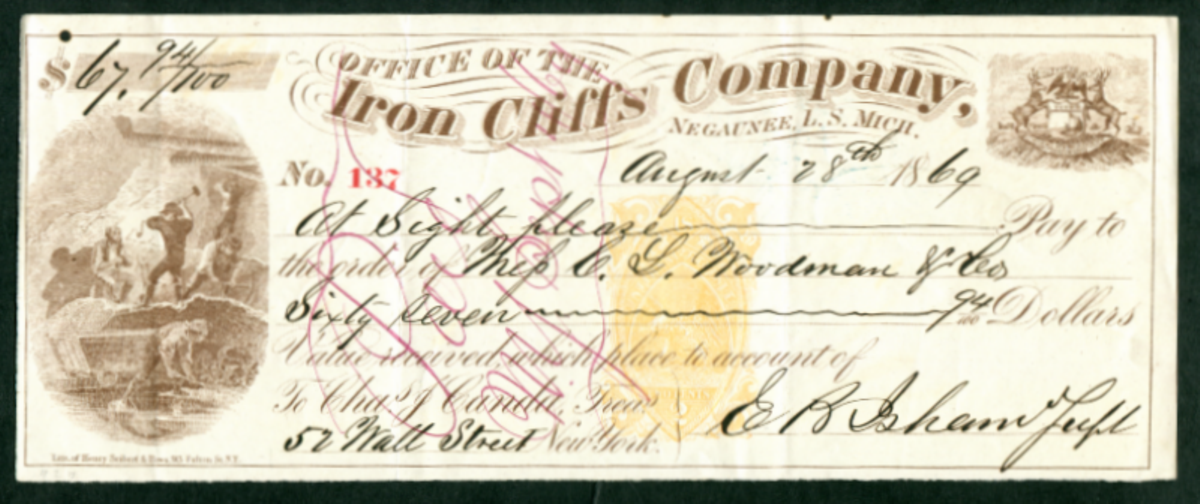 $ 67. 94/100
OFFICE OF THE
Iron Cliffs Company,
NEGAUNEE, L. S. MICH.
No. 137
August 28th 1869
At Sight please Pay to
the order of Mess C. L. Woodman & Co
Sixty seven 94/100 Dollars
Value received which place to account of
To Chas. J Canda, Treas
52 Wall Street New York.
E R Isham Supt